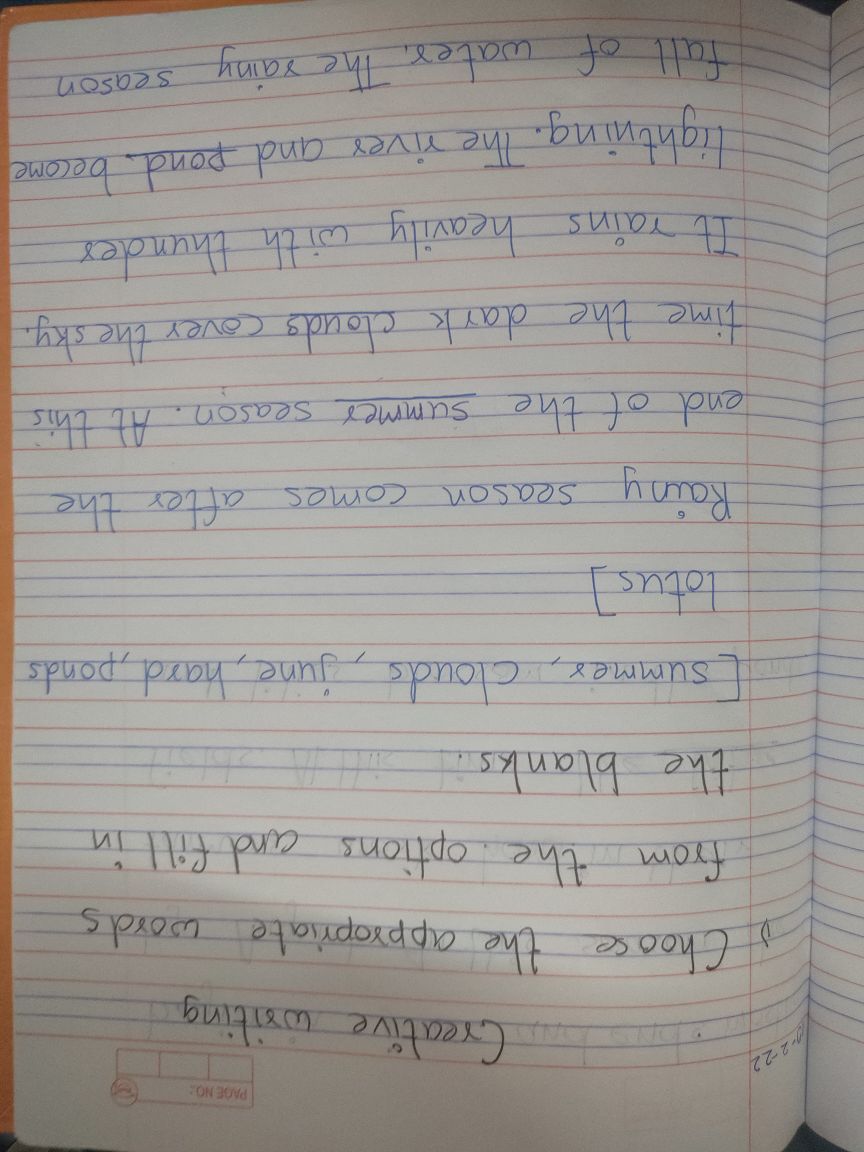 PAGE NO:
Creative writing
1) Choose the appropriate words
from the options and fill in
the blanks.
[summer, clouds, june, hard, ponds
lotus]
Rainy season comes after the
end of the summer season. At this
time the dark clouds cover the sky.
It rains heavily with thunder
lightning. The river and pond become
fall of water. The rainy season